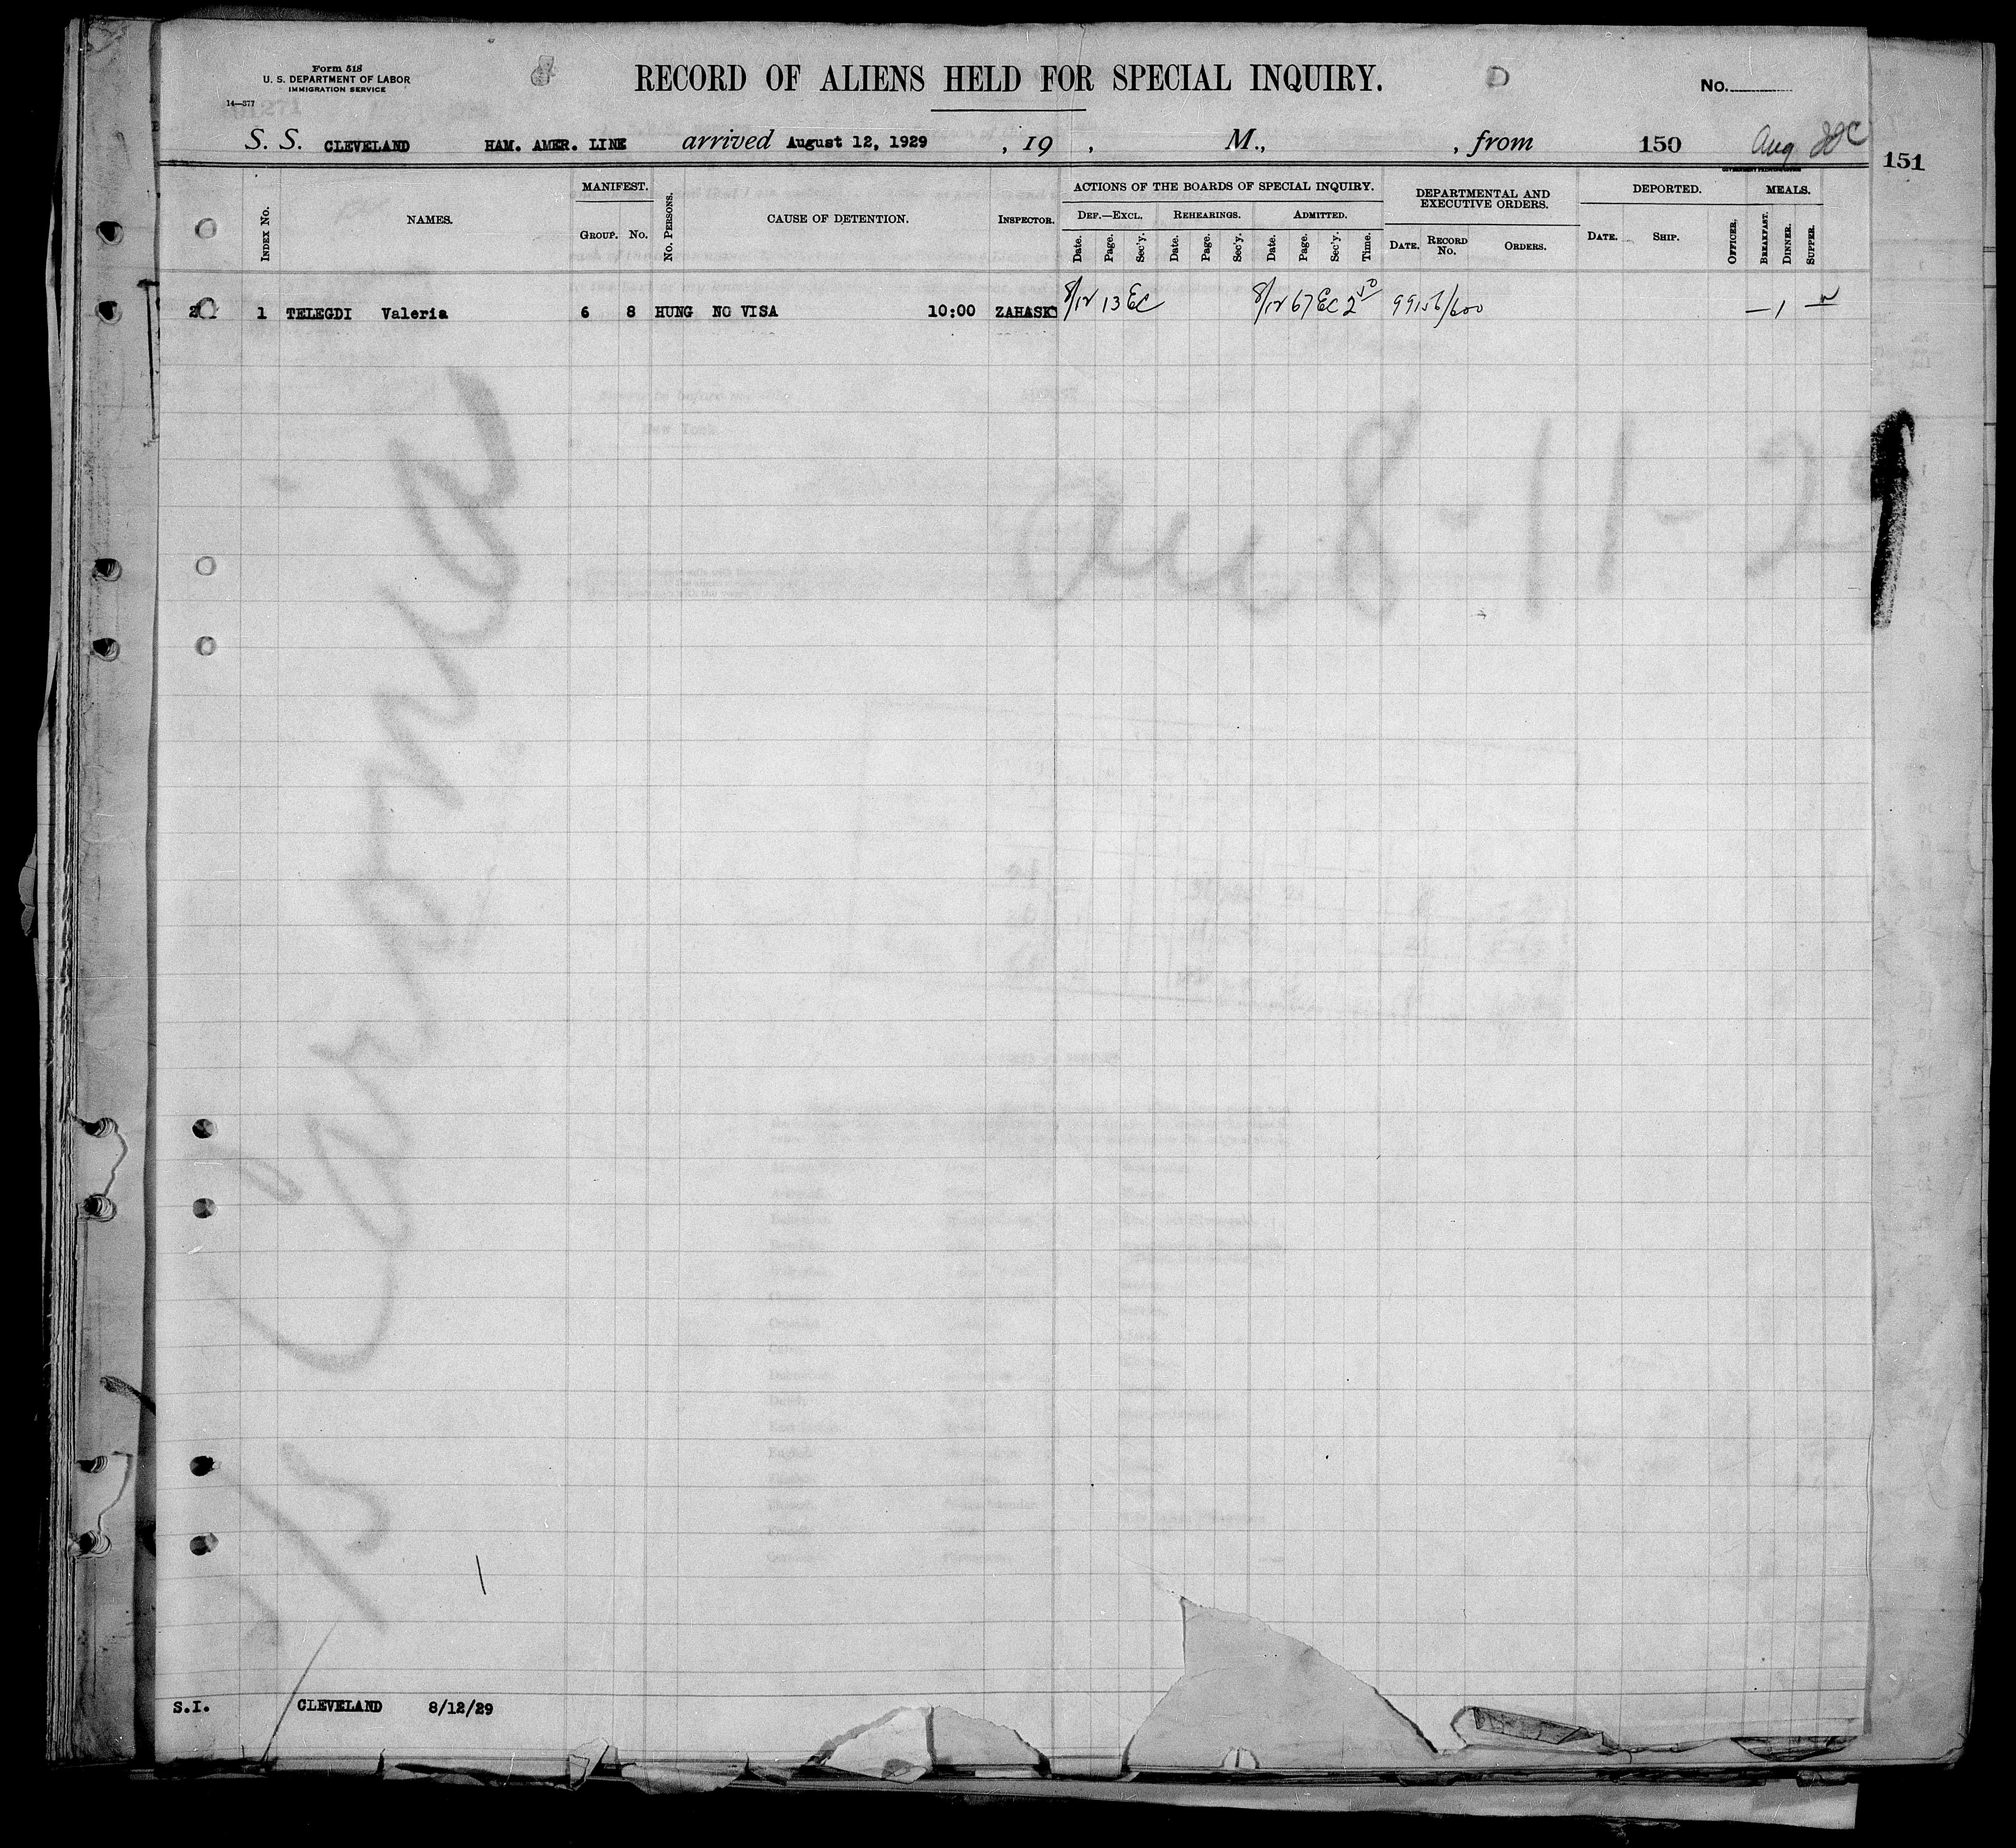 Form 518
U. S. DEPARTMENT OF LABOR
IMMIGRATION SERVICE
14—377
RECORD OF ALIENS HELD FOR SPECIAL INQUIRY.
D
No.
S. S. CLEVELAND HAM. AMER. LINE arrived August 12, 1929 , 19 , M., , from 150 Aug
151
INDEX No. NAMES. MANIFEST. GROUP. No. No. PERSONS. CAUSE OF DETENTION. INSPECTOR.
ACTIONS OF THE BOARDS OF SPECIAL INQUIRY.
DEF.—EXCL. Date. Page. Sec'y. REHEARINGS. Date. Page. Sec'y. ADMITTED. Date. Page. Sec'y. Time.
DEPARTMENTAL AND EXECUTIVE ORDERS. DATE. RECORD No. ORDERS.
DEPORTED. DATE. SHIP. OFFICER.
MEALS. BREAKFAST. DINNER. SUPPER.
1 TELEGDI Valeria 6 8 HUNG NO VISA 10:00 ZAHASK 8/12 13 EC 8/12 67 EC 2 50 99156/600 — 1
S.I. CLEVELAND 8/12/29